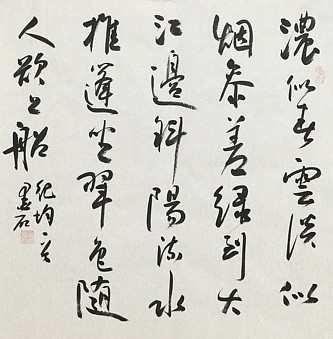 浓似春雲淡似
烟参差绿到大
江邊斜陽流水
推篷坐翠色随
人欲上船
纪均诗
墨石